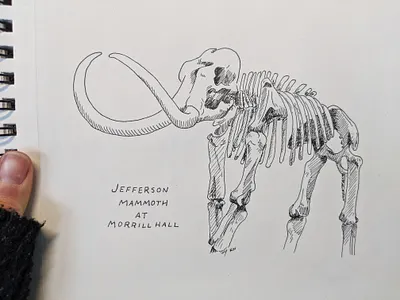 JEFFERSON
MAMMOTH
AT
MORRILL HALL